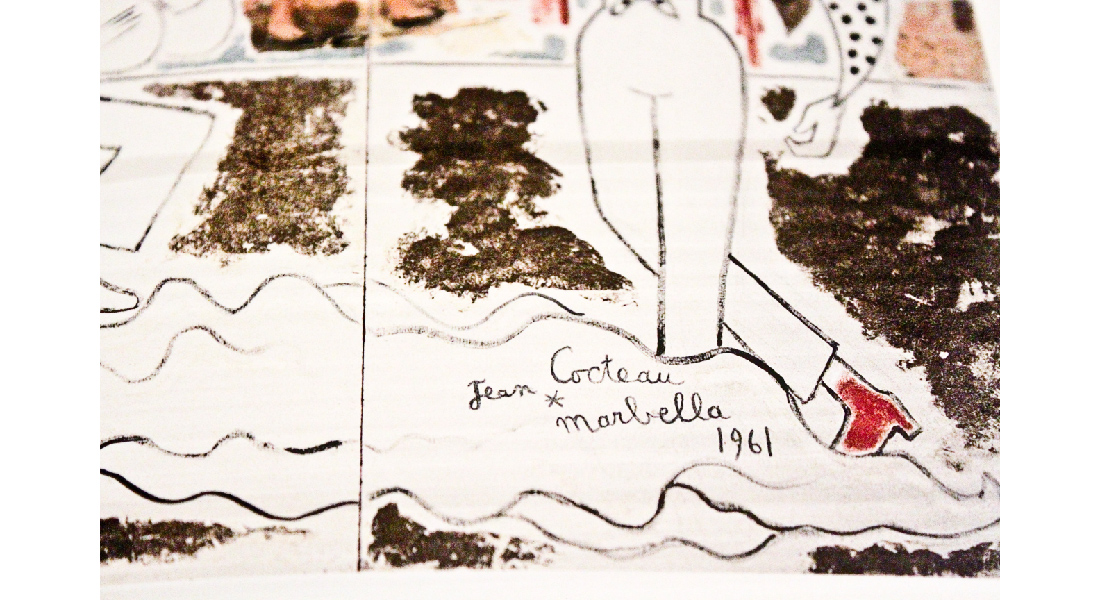 Jean Cocteau
* marbella
1961